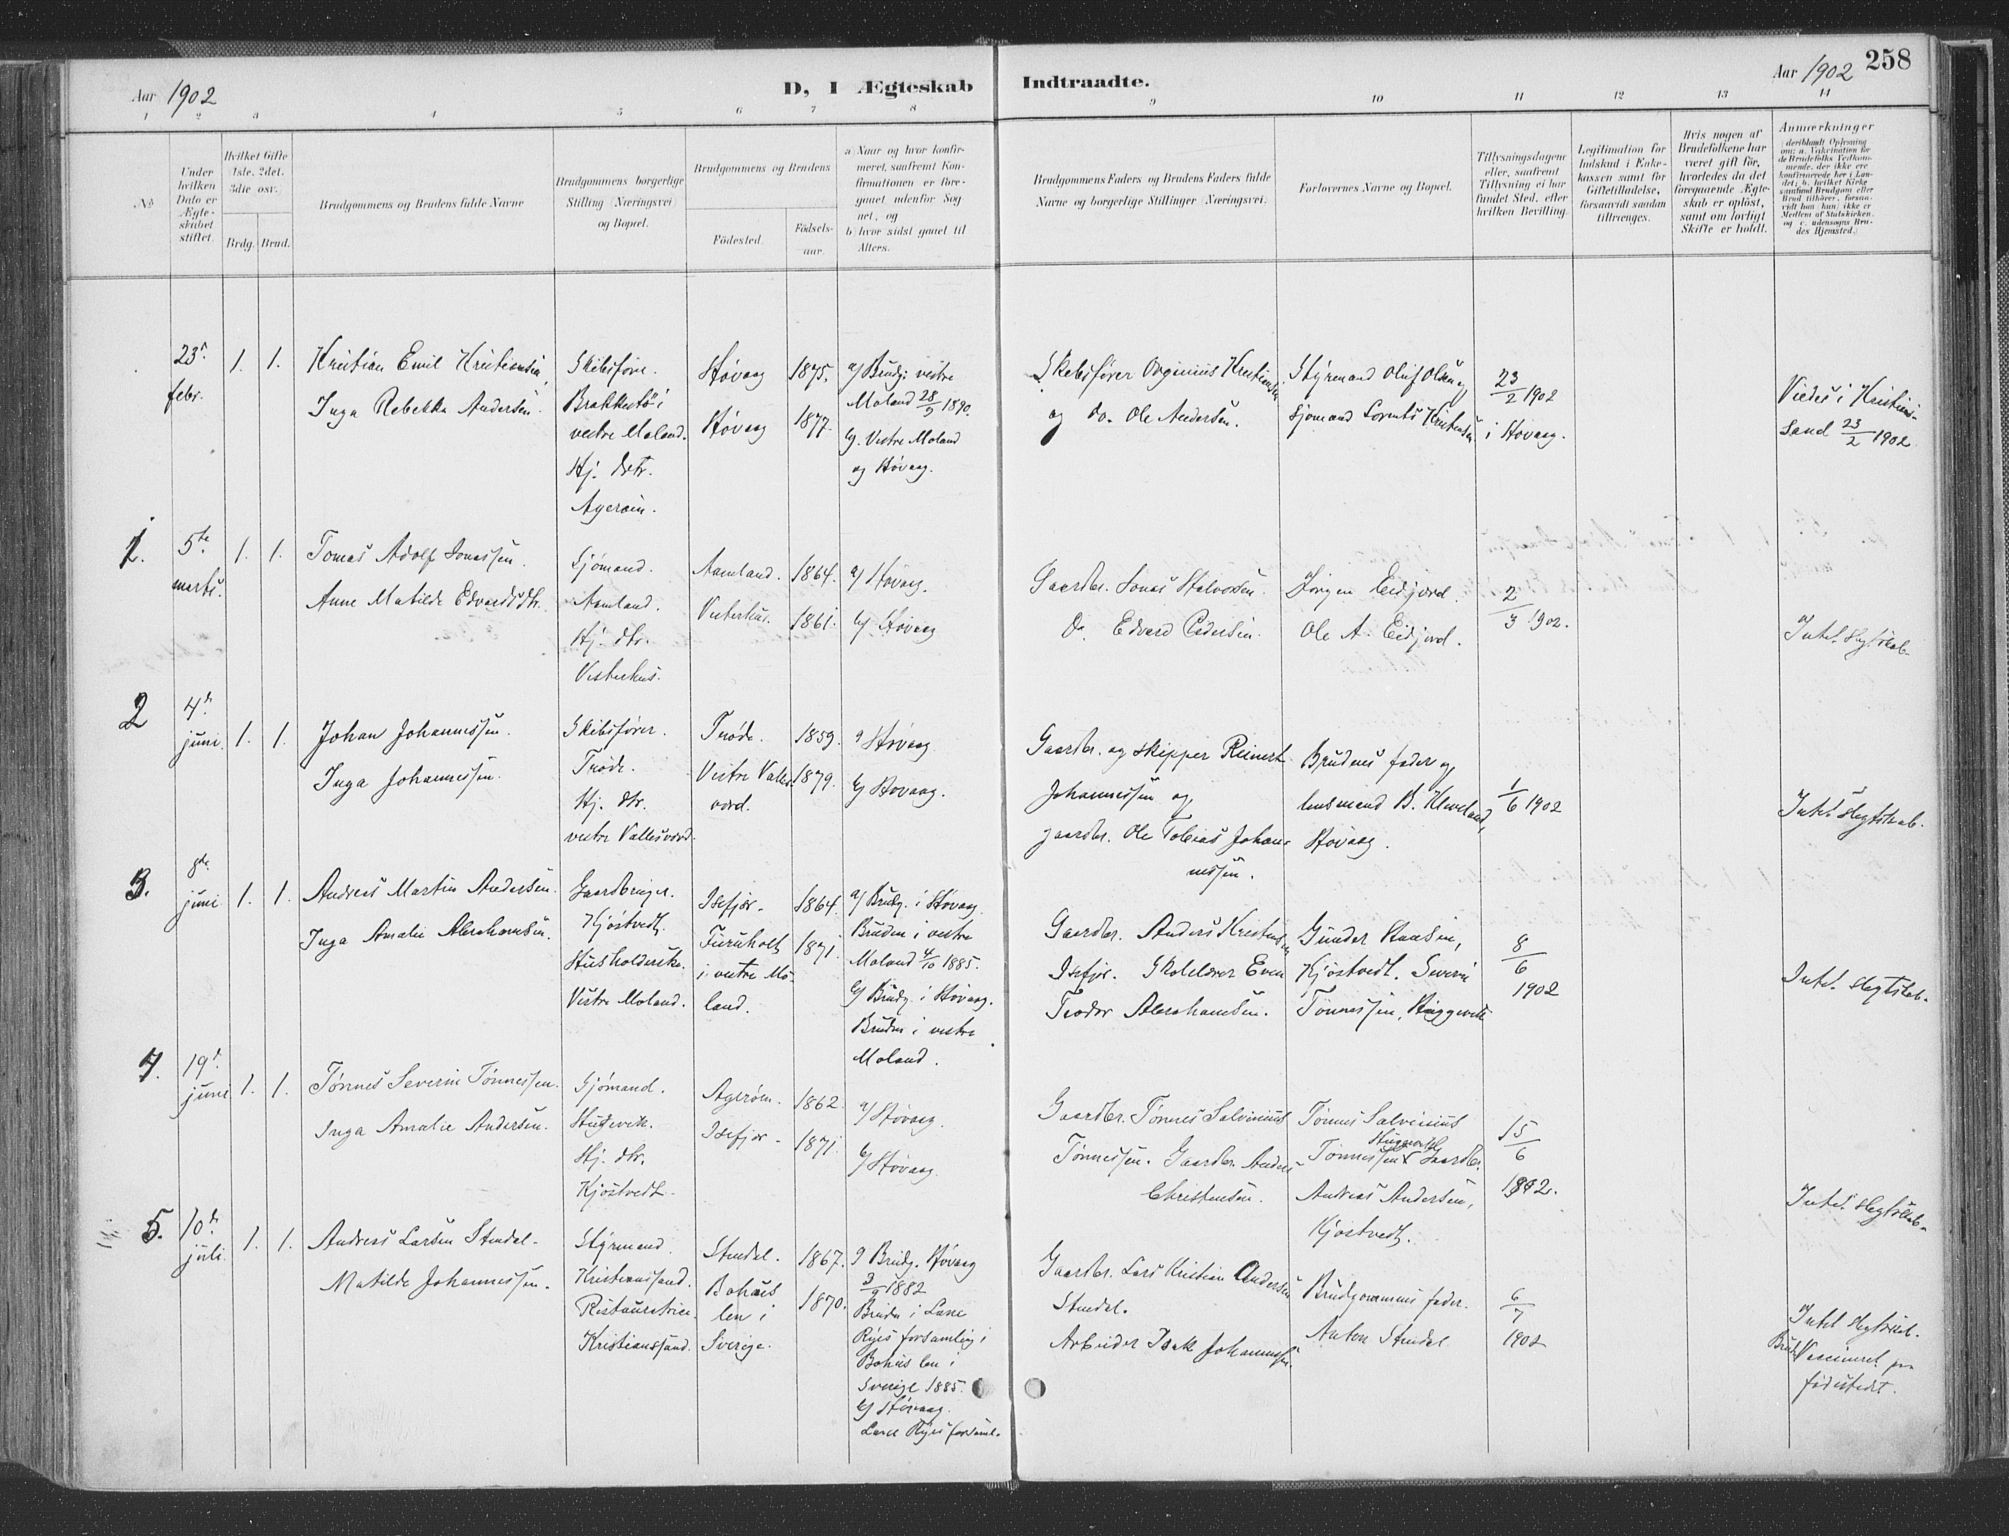 Aar 1902
D, I Ægteskab Indtraadte.
Aar 1902 258
1 2 3 4 5 6 7 8 9 10 11 12 13 14
No
Under hvilken Dato er Ægteskabet stiftet.
Hvilket Gifte 1ste, 2det, 3die osv.
Brdg. Brud.
Brudgommens og Brudens fulde Navne
Brudgommens borgerlige Stilling (Næringsvei) og Bopæl.
Brudgommens og Brudens
Fødested. Fødselsaar.
a) Naar og hvor konfirmeret, saafremt Konfirmationen er foregaaet udenfor Sognet, og
b) hvor sidst gaaet til Alters.
Brudgommens Faders og Brudens Faders fulde Navne og borgerlige Stillinger (Næringsvei).
Forlovernes Navne og Bopæl.
Tillysningsdagene eller, saafremt Tillysning ei har fundet Sted, efter hvilken Bevilling.
Legitimation for Indskud i Enkekassen samt for Giftetilladelse, forsaavidt saadan tiltrænges.
Hvis nogen af Brudefolkene har været gift før, hvorledes da det foregaaende Ægteskab er opløst, samt om lovligt Skifte er holdt.
Anmærkninger
(deriblandt Oplysning om: a. Vakcination for de Brudefolks Vedkommende, der ikke ere konfirmerede her i Landet; b. hvilket Kirkesamfund Brudgom eller Brud tilhører, forsaavidt han (hun) ikke er Medlem af Statskirken, og c. udensogns Brudes Hjemsted.)
23 febr.
1. 1.
Kristian Emil Kristiansen,
Inga Rebekka Andersen.
Skibsfører.
Brækkestø i
vestre Moland.
Hj. dtr.
Agerøen.
Høvaag 1875.
Høvaag 1877.
a/ Brudg. vestre
Moland 28/9 1890.
b/. Vestre Moland
og Høvaag.
Skibsfører Virginius Kristiansen
og do. Ole Andersen.
Styrmand Oluf Olsen og
Sjømand Lorents Kristensen
23/2 1902
i Høvaag.
Viedes i Kristian-
sand 23/2 1902
1. 5te marts.
1. 1.
Tomas Adolf Jonassen.
Anne Matilde Edvardsdtr.
Sjømand.
Aamland.
Hj. dtr.
Vesterhus.
Aamland. 1864.
Vesterhus. 1861.
a/ Høvaag.
b/ Høvaag
Gaardbr. Jonas Halvorsen.
Do. Edvard Pedersen.
Jørgen Eidjord.
Ole A. Eidjord.
2/3 1902.
Intet Slegtskab.
2 4de juni.
1. 1.
Johan Johannessen.
Inga Johannessen.
Skibsfører.
Trøde.
Hj. dtr.
vestre Vallesværd.
Trøde. 1859.
Vestre Valles- 1879.
værd.
a Høvaag
b/ Høvaag.
Gaardbr. og skipper Reinert
Johannessen og
gaardbr. Ole Tobias Johan-
nessen.
Brudens fader og
lensmand B. Kleveland,
Høvaag.
1/6 1902
Intet Slegtskab.
3. 8de juni
1. 1.
Andreas Martin Andersen.
Inga Amalie Abrahamsen.
Gaardbruger.
Kjøstvedt.
Husholderske.
Vestre Moland.
Isefjær. 1864.
Furuholt 1871.
i vestre Mo-
land.
a/ Brudg. i Høvaag.
Bruden i vestre
Moland 4/10 1885.
b/ Brudg. i Høvaag.
Bruden i vestre
Moland.
Gaardbr. Anders Kristensen
Isefjær. Skolelærer Even
Teodor Abrahamsen.
Gunder Hansen,
Kjøstvedt. Severin
Tønnessen, Huggevik
8/6
1902
Intet Slegtskab.
4. 19de juni
1. 1.
Tønnes Severin Tønnessen.
Inga Amalie Andersen.
Sjømand.
Hugevik.
Hj. dtr.
Kjøstvedt.
Agerøen. 1862
Isefjær. 1871.
a/ Høvaag.
b/ Høvaag.
Gaardbr. Tønnes Salvinius
Tønnessen. Gaardbr. Anders
Christensen.
Tønnes Salvinius
Tønnessen Huggevik Gaardbr.
Andreas Andersen,
Kjøstvedt.
15/6
1902.
Intet Slegtskab.
5. 10de juli.
1. 1.
Andreas Larsen Stendal.
Matilde Johannessen.
Styrmand.
Kristianssand.
Kristianssand.
Stendal. 1867.
Bohus 1870.
len i
Sverige.
a Brudg. Høvaag
3/9 1882
Bruden i Lane
Ryrs forsamling i
Bohus len i
Sverige 1885.
b/ Høvaag.
Lane Ryrs forsaml.
Gaardbr. Lars Kristian Andersen
Stendal.
Arbeider Isak Johannessen.
Brudgommens fader.
Anton Stendal
6/7
1902
Intet Slegtskab.
Brud. Vaccineret paa
fødestedet.